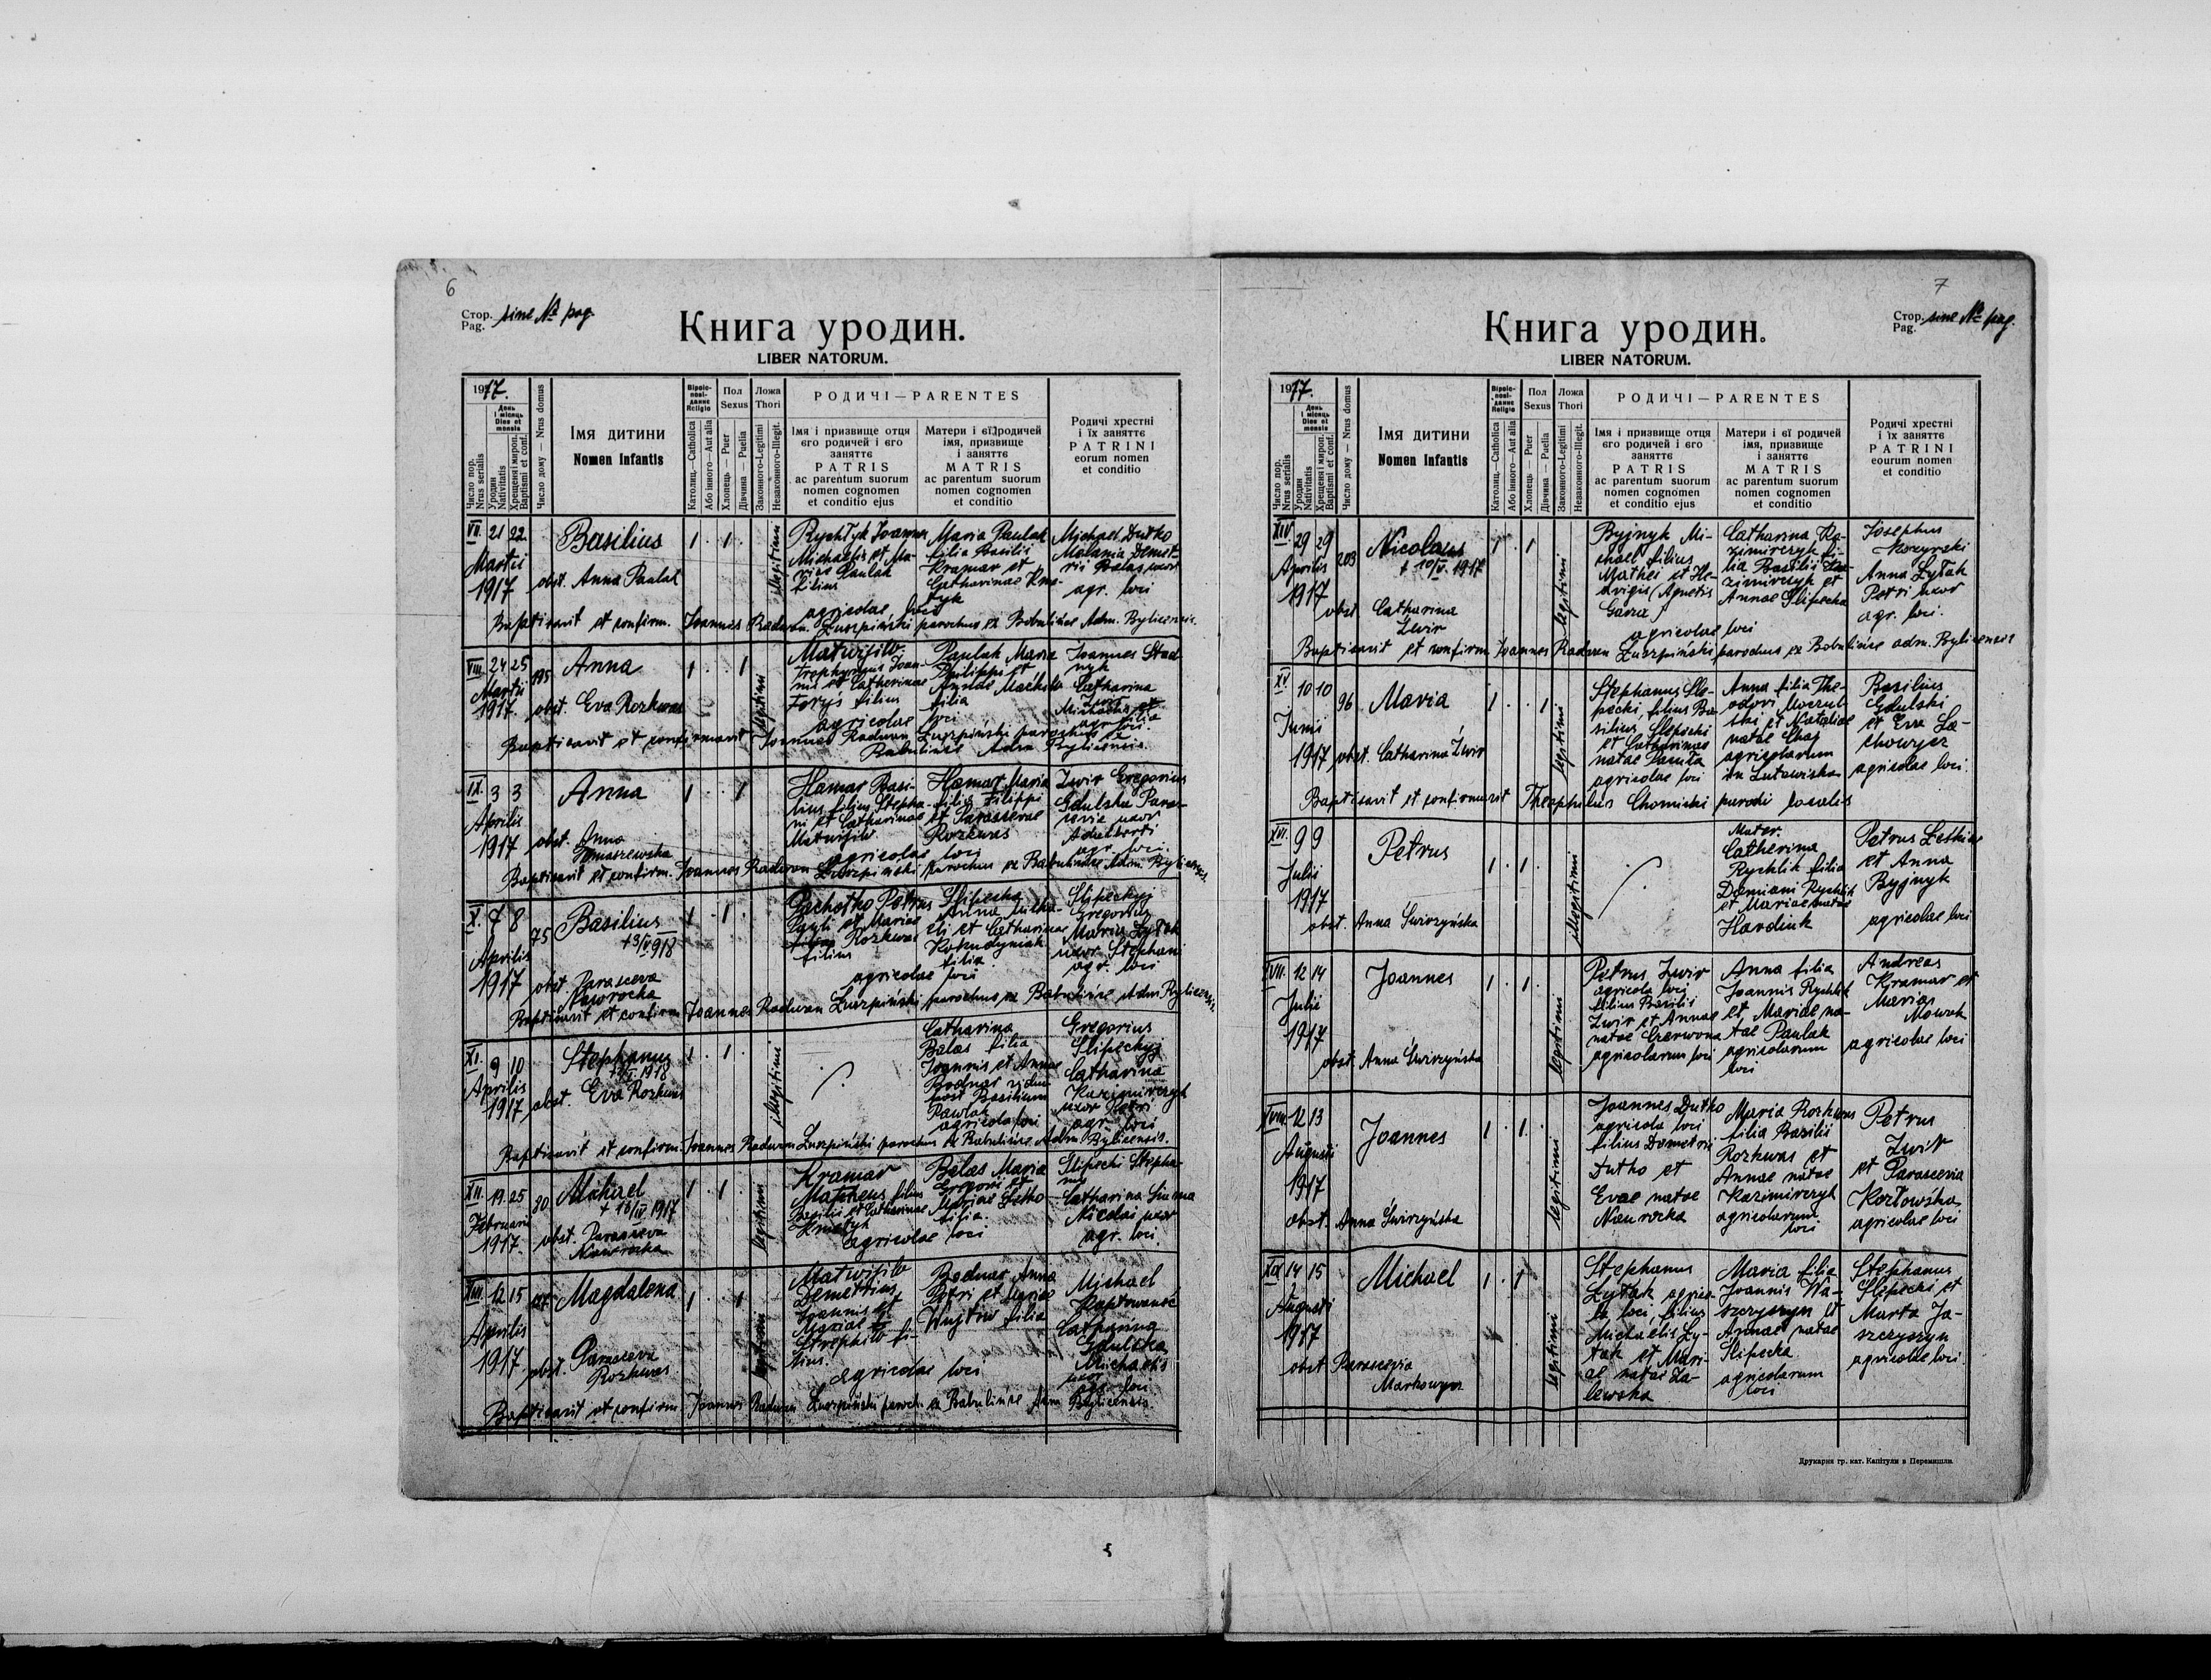 6
Стор. Pag. sine № pag.
Книга уродин.
LIBER NATORUM.
1917.
Число пор. Nrus serialis
День і місяць Dies et mensis
Уродин Nativitatis
Хрещеня і миропом. Baptismi et conf.
Число дому — Nrus domus
Імя дитини
Nomen infantis
Віроісповіданнє Religio
Католиц.—Catholica
Або інного—Aut alia
Пол Sexus
Хлопець — Puer
Дівчина — Puella
Ложа Thori
Законного-Legitimi
Незаконного-Illegit.
РОДИЧІ — PARENTES
Імя і призвище отця
єго родичей і єго
заняттє
PATRIS
ac parentum suorum
nomen cognomen
et conditio ejus
Матери і єї родичей
імя, призвище
і заняттє
MATRIS
ac parentum suorum
nomen cognomen
et conditio
Родичі хрестні
і їх заняттє
PATRINI
eorum nomen
et conditio
VII. 21 22
Martii
1917
Basilius
obst. Anna Paulak
1 . 1 .
Rychłyk Joannes
Michaelis et Ma-
riae Paulak
filius
Maria Paulak
filia Basilii
Kramar et
Catharinae Kma-
tyk
agricolae loci
Michael Dutko
Melania Demet-
rii Balas uxor
agr. loci
Baptisavit et confirm. Joannes Raduan parochus ex Babulińce Adm. Bylicensis.
VIII. 24 25
Martii
1917.
195
Anna
obst. Eva Rozkwas
1 . . 1
legitimi
Matwijiw
Joan-
nis et Catherinae
Forys filius
Paulak Maria
Philippi et
Annae
filia
agricolae loci
Joannes Stad-
nyk
Catharina
Zwir
agr. filia
Baptisavit et confirmavit Joannes Raduan parochus ex
Babulińce Adm. Bylicensis.
IX. 3 3
Aprilis
1917
Anna
obst. Anna
Tomaszewska
1 . . 1
Hamar Basi-
lius filius Stepha-
ni et Catharinae
Matwijiw
Hamar Maria
filia Filippi
et Parascevae
Rozkwas
agricolae loci
Zwir Gregorius
Gdulska Paras-
cevia uxor
Adalberti
agr. loci.
Baptisavit et confirm. Joannes Raduan parochus ex Babulińce Adm. Bylicensis.
X. 7 8
Aprilis
1917
75
Basilius
obst. Parasceva
Nawrocka
1 . 1 .
Petrus
et Mariae
Rozkwas
filius
Slipecka
Anna
et Catharinae
filia
agricolae loci
Slipeckyj
Gregorius
Maria Zytak
uxor Stephani
agr. loci
Baptisavit et confirm. Joannes Raduan parochus ex Babulińce Adm. Bylicensis.
XI. 9 10
Aprilis
1917
Stephanus
obst. Eva Rozkwas
1 . 1 .
illegitimi
Catharina
Balas filia
Joannis et Annae
Bodnar vidua
post Basilium
Pawlak
agricola loci
Gregorius
Slipeckyj
Catharina
Kazimirczyk
uxor Petri
agr. loci
Baptisavit et confirm. Joannes Raduan parochus ex Babulińce Adm. Bylicensis.
XII. 19 25
Februarii
1917.
30
Michael
+ 18/IV 1917
obst. Parasceva
Nawrocka
1 . 1 .
legitimi
Kramar
Matheus filius
Basilii et Catharinae
Kmatyk
Balas Maria
Gregorii et
Mariae
filia
agricolae loci
Slipecki Stepha-
nus
Catharina
Nicolai uxor
agr. loci.
XIII. 12 15
Aprilis
1917
Magdalena
obst. Parasceva
Rozkwas
1 . . 1
legitimi
Matwijiw
Demetrius
Joannis et
Mariae
fi-
lius.
Bodnar Anna
Petri et Mariae
Wujtiw filia
agricolae loci
Michael
Catharina
Gdulska
Michaelis
uxor
agr. loci
Baptisavit et confirm. Joannes Raduan paroch. ex Babulińce Adm Bylicensis.
7
Стор. Pag. sine № pag.
Книга уродин.
LIBER NATORUM.
1917.
Число пор. Nrus serialis
День і місяць Dies et mensis
Уродин Nativitatis
Хрещеня і миропом. Baptismi et conf.
Число дому — Nrus domus
Імя дитини
Nomen infantis
Віроісповіданнє Religio
Католиц.—Catholica
Або інного—Aut alia
Пол Sexus
Хлопець — Puer
Дівчина — Puella
Ложа Thori
Законного-Legitimi
Незаконного-Illegit.
РОДИЧІ — PARENTES
Імя і призвище отця
єго родичей і єго
заняттє
PATRIS
ac parentum suorum
nomen cognomen
et conditio ejus
Матери і єї родичей
імя, призвище
і заняттє
MATRIS
ac parentum suorum
nomen cognomen
et conditio
Родичі хрестні
і їх заняттє
PATRINI
eourum nomen
et conditio
XIV. 29 29
Aprilis
1917
203
Nicolaus
obst Catharina
Zwir
1 . 1
legitimi
Byjnyk Mi-
chael filius
Mathei et He-
dvigis (Agnetis)
Catharina Ka-
zimirczyk fi-
lia Basilii Ka-
zimirczyk et
Annae Slipecka
agricolae loci
Josephus
Anna Zytak
Petri uxor
agr. loci.
Baptisavit et confirm. Joannes Raduan parochus ex Babulińce adm. Bylicensis
XV. 10 10
Junii
1917
96
Maria
obst. Catharina Zwir
1 . . 1
legitimi
Stephanus Sle-
pecki filius Ba-
silius Slepecki
et Catharinae
natae
agricolae loci
Anna filia The-
odori
et Nataliae
natae
agricolarum
in Lutowiska
Basilius
Gdulski
et Eva
agricolae loci.
Baptisavit et confirmavit Theophilus Chomicki parochi localis
XVI. 9 9
Julii
1917
Petrus
obst. Anna Świrzyńska
1 . 1 .
illegitimi
Mater.
Catherina
Rychlik filia
Damiani Rychlik
et Mariae natae
Hardink
Petrus
et Anna
Byjnyk
agricolae loci
XVII. 12 14
Julii
1917
Joannes
obst. Anna Świrzyńska
1 . 1 .
legitimi
Petrus Zwir
agricola loci
filius Basilii
Zwir et Annae
natae Czerwona
agricolarum loci
Anna filia
Joannis Rychlik
et Mariae na-
tae Paulak
agricolarum
loci
Andreas
Kramar et
Maria
Nowak
agricolae loci
XVIII. 12 13
Augusti
1917
Joannes
obst. Anna Świrzyńska
1 . 1 .
legitimi
Joannes Dutko
agricola loci
filius Demetrii
Dutko et
Evae natae
Nawrocka
Maria Rozkwas
filia Basilii
Rozkwas et
Annae natae
Kazimirczyk
agricolarum
loci
Petrus
Zwir
et Parascevia
Kozłowska
agricolae loci
XIX 14 15
Augusti
1917
Michael
obst Parascevia
1 . 1
legitimi
Stephanus
Zytak agrico-
la loci, filius
Michaelis Zy-
tak et Mari-
ae natae Za-
lewska
Maria filia
Joannis
et
Annae natae
Slipecka
agricolarum
loci
Stephanus
Slipecki et
Marta Ja-
szczyszyn
agricolae loci.
Друкарня гр. кат. Капітули в Перемишли.